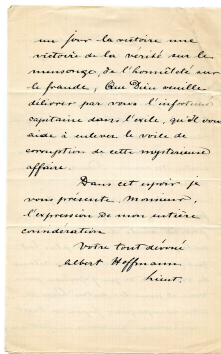 un jour la victoire une
victoire de la vérité sur le
mensonge, de l'honnêteté sur
le fraude; Que Dieu veuille
délivrer par vous l'infortuné
capitaine dans l'exile, qu'Il vous
aide à enlever le voile de
corruption de cette mysterieuse
affaire.
Dans cet espoir je
vous présente, Monsieur,
l'expression de mon entière
consideration
Votre tout dévoué
Albert Hoffmann
Lieut.